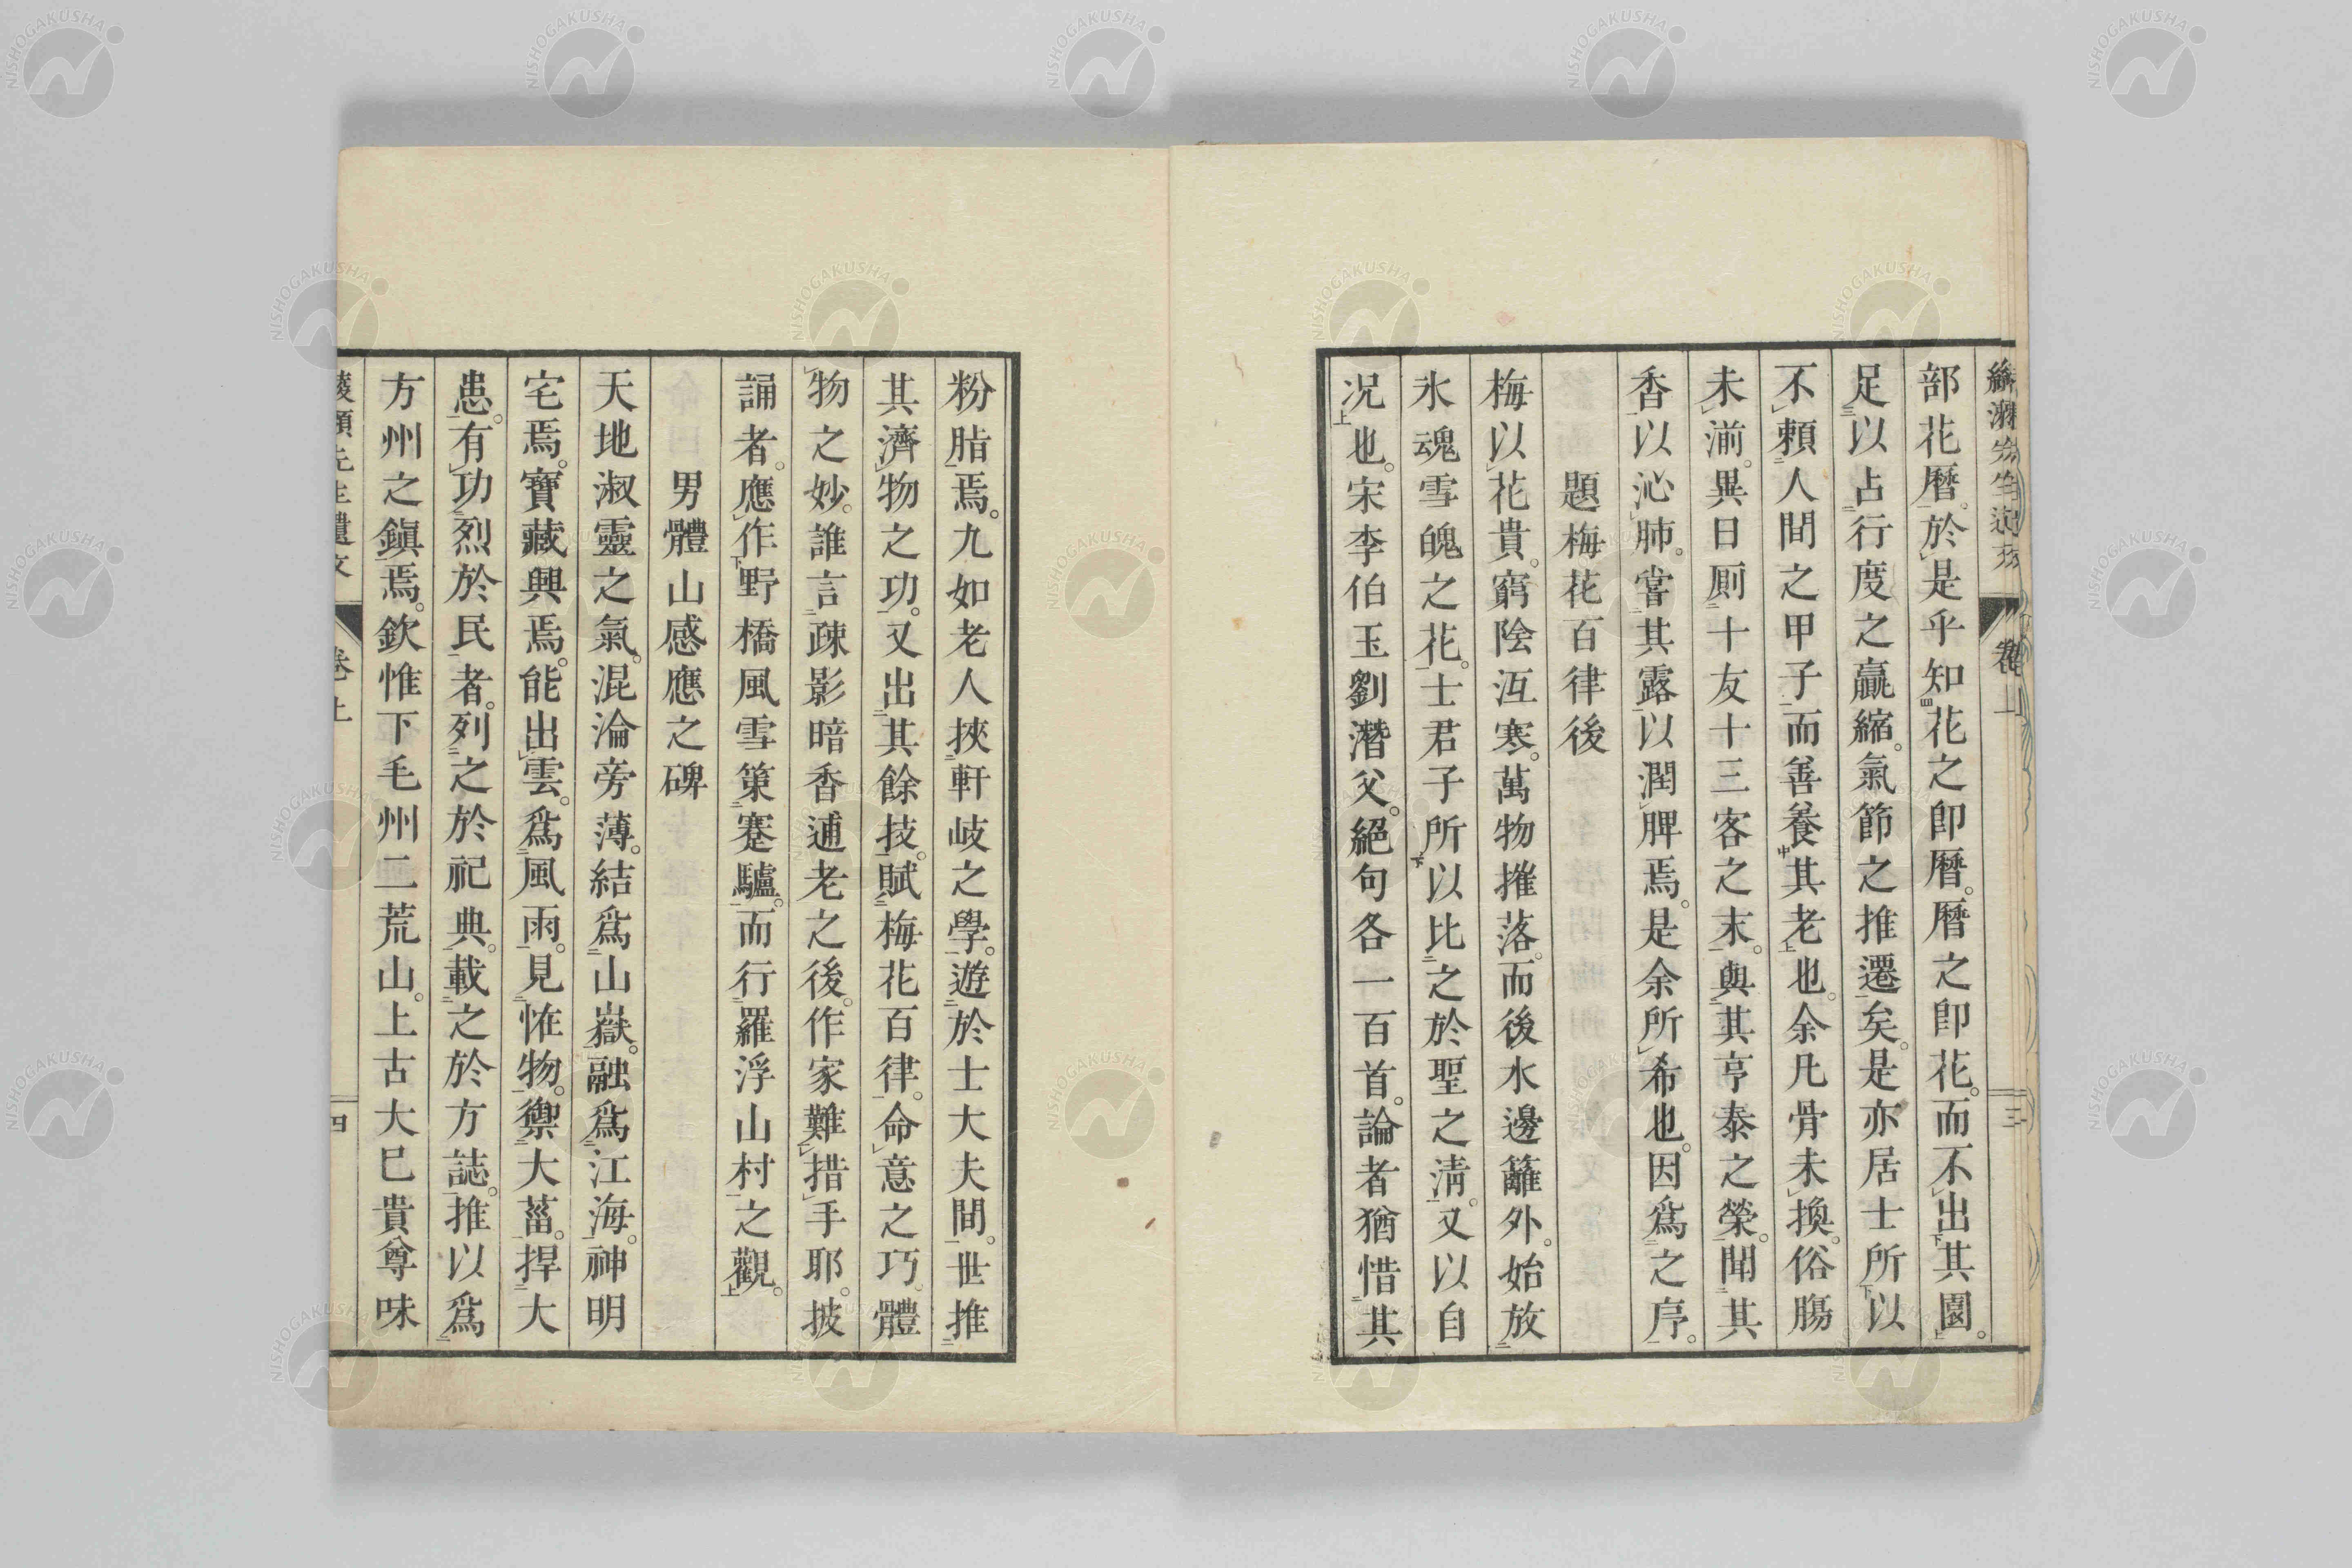 部花曆。於是乎知花之卽曆。曆之卽花。而不出其園。
足以占行度之贏縮。氣節之推遷矣。是亦居士所以
不頼人間之甲子。而善養其老也。余凡骨未換。俗腸
未湔。異日厠十友十三客之末。與其亨泰之榮。聞其
香以沁肺。嘗其露以潤脾焉。是余所希也。因爲之序。
題梅花百律後
梅以花貴。窮陰沍寒。萬物摧落。而後水邊籬外。始放
氷魂雪魄之花。士君子所以比之於聖之淸。又以自
况也。宋李伯玉劉潛父。絕句各一百首。論者猶惜其
粉脂焉。九如老人挾軒岐之學。遊於士大夫間。世推
其濟物之功。又出其餘技。賦梅花百律。命意之巧。體
物之妙。誰言疎影暗香逋老之後。作家難措手耶。披
誦者。應作野橋風雪策蹇驢。而行羅浮山村之觀。
男體山感應之碑
天地淑靈之氣。混淪旁薄。結爲山嶽。融爲江海。神明
宅焉。寶藏興焉。能出雲。爲風雨。見恠物。禦大菑。捍大
患。有功烈於民者。列之於祀典。載之於方誌。推以爲
方州之鎭焉。欽惟下毛州二荒山。上古大已貴尊味
先生遺文 卷上 四
卷上 三
NISHOGAKUSHA